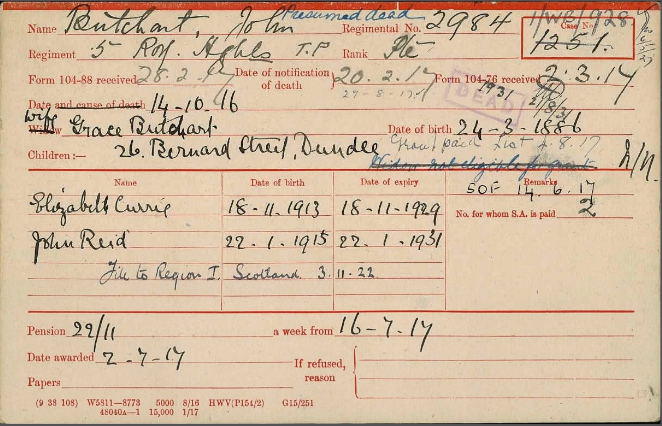 Name Butchart, John Presumed dead Regimental No. 2984 1/WB/1928
Case No. 1251.
Regiment 5 Roy. Aghls T.F. Rank Pte
Form 104-88 received 28.2.17 Date of notification of death 20.2.17 Form 104-76 received 2.3.17
27-8-17 DEAD 1931
Date and cause of death 14-10-16
wife
Widow Grace Butchart Date of birth 24-3-1886
26. Bernard Street, Dundee Grant paid List 2.8.17
Children:— Widow not eligible for grant N/N.
Name Date of birth Date of expiry Remarks
SOF 14.6.17
Elizabeth Currie 18-11-1913 18-11-1929 No. for whom S.A. is paid 2
John Reid 22.1.1915 22.1.1931
File to Region I. Scotland. 3.11.22
Pension 22/11 a week from 16-7-17
Date awarded 2-7-17
If refused, reason
Papers
(9 38 108) W5811—8773 5000 8/16 HWV(P154/2) G15/251
48040A—1 15,000 1/17